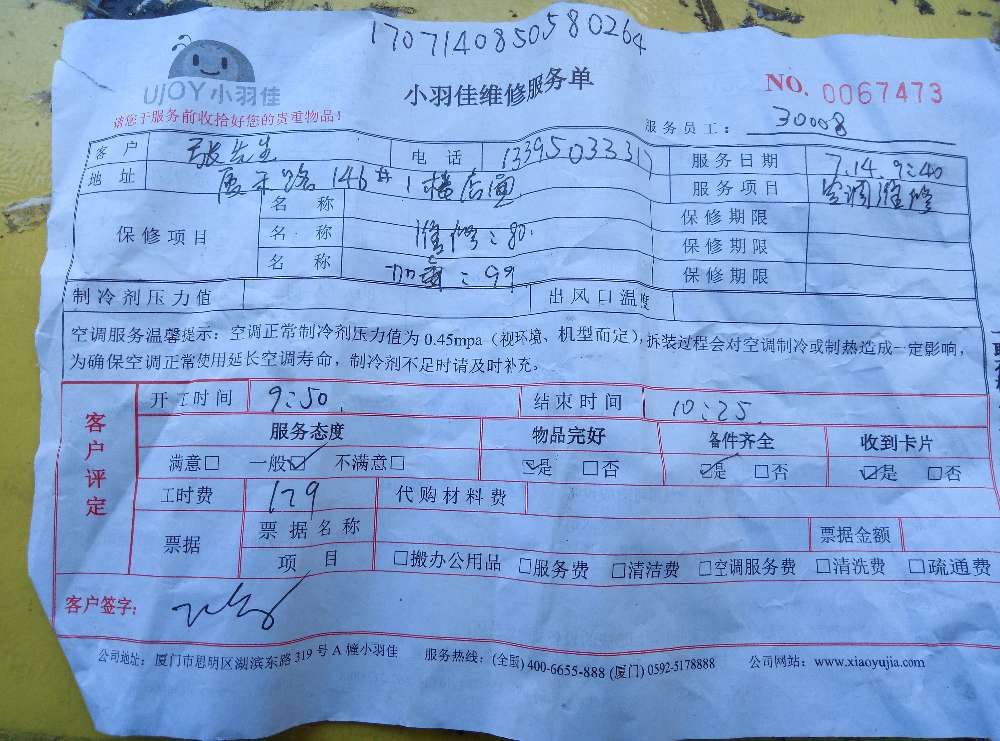 1707140850580264
UJOY小羽佳
小羽佳维修服务单
NO. 0067473
请您于服务前收拾好您的贵重物品!
服务员工: 30008
客户 张先生 电话 13395033317 服务日期 7.14.9:40
地址 146# 1楼店面 服务项目 空调维修
保修项目
名称 保修期限
名称 维修:80. 保修期限
名称 :99 保修期限
制冷剂压力值 出风口温度
空调服务温馨提示:空调正常制冷剂压力值为 0.45mpa(视环境、机型而定),拆装过程会对空调制冷或制热造成一定影响,
为确保空调正常使用延长空调寿命,制冷剂不足时请及时补充。
客户评定
开工时间 9:50. 结束时间 10:25
服务态度 物品完好 备件齐全 收到卡片
满意□ 一般☑ 不满意□ ☑是 □否 ☑是 □否 ☑是 □否
工时费 179 代购材料费
票据 票据名称 票据金额
项目 □搬办公用品 □服务费 □清洁费 □空调服务费 □清洗费 □疏通费
客户签字:
公司地址:厦门市思明区湖滨东路 319 号 A 幢小羽佳 服务热线:(全国) 400-6655-888 (厦门) 0592-5178888 公司网站:www.xiaoyujia.com